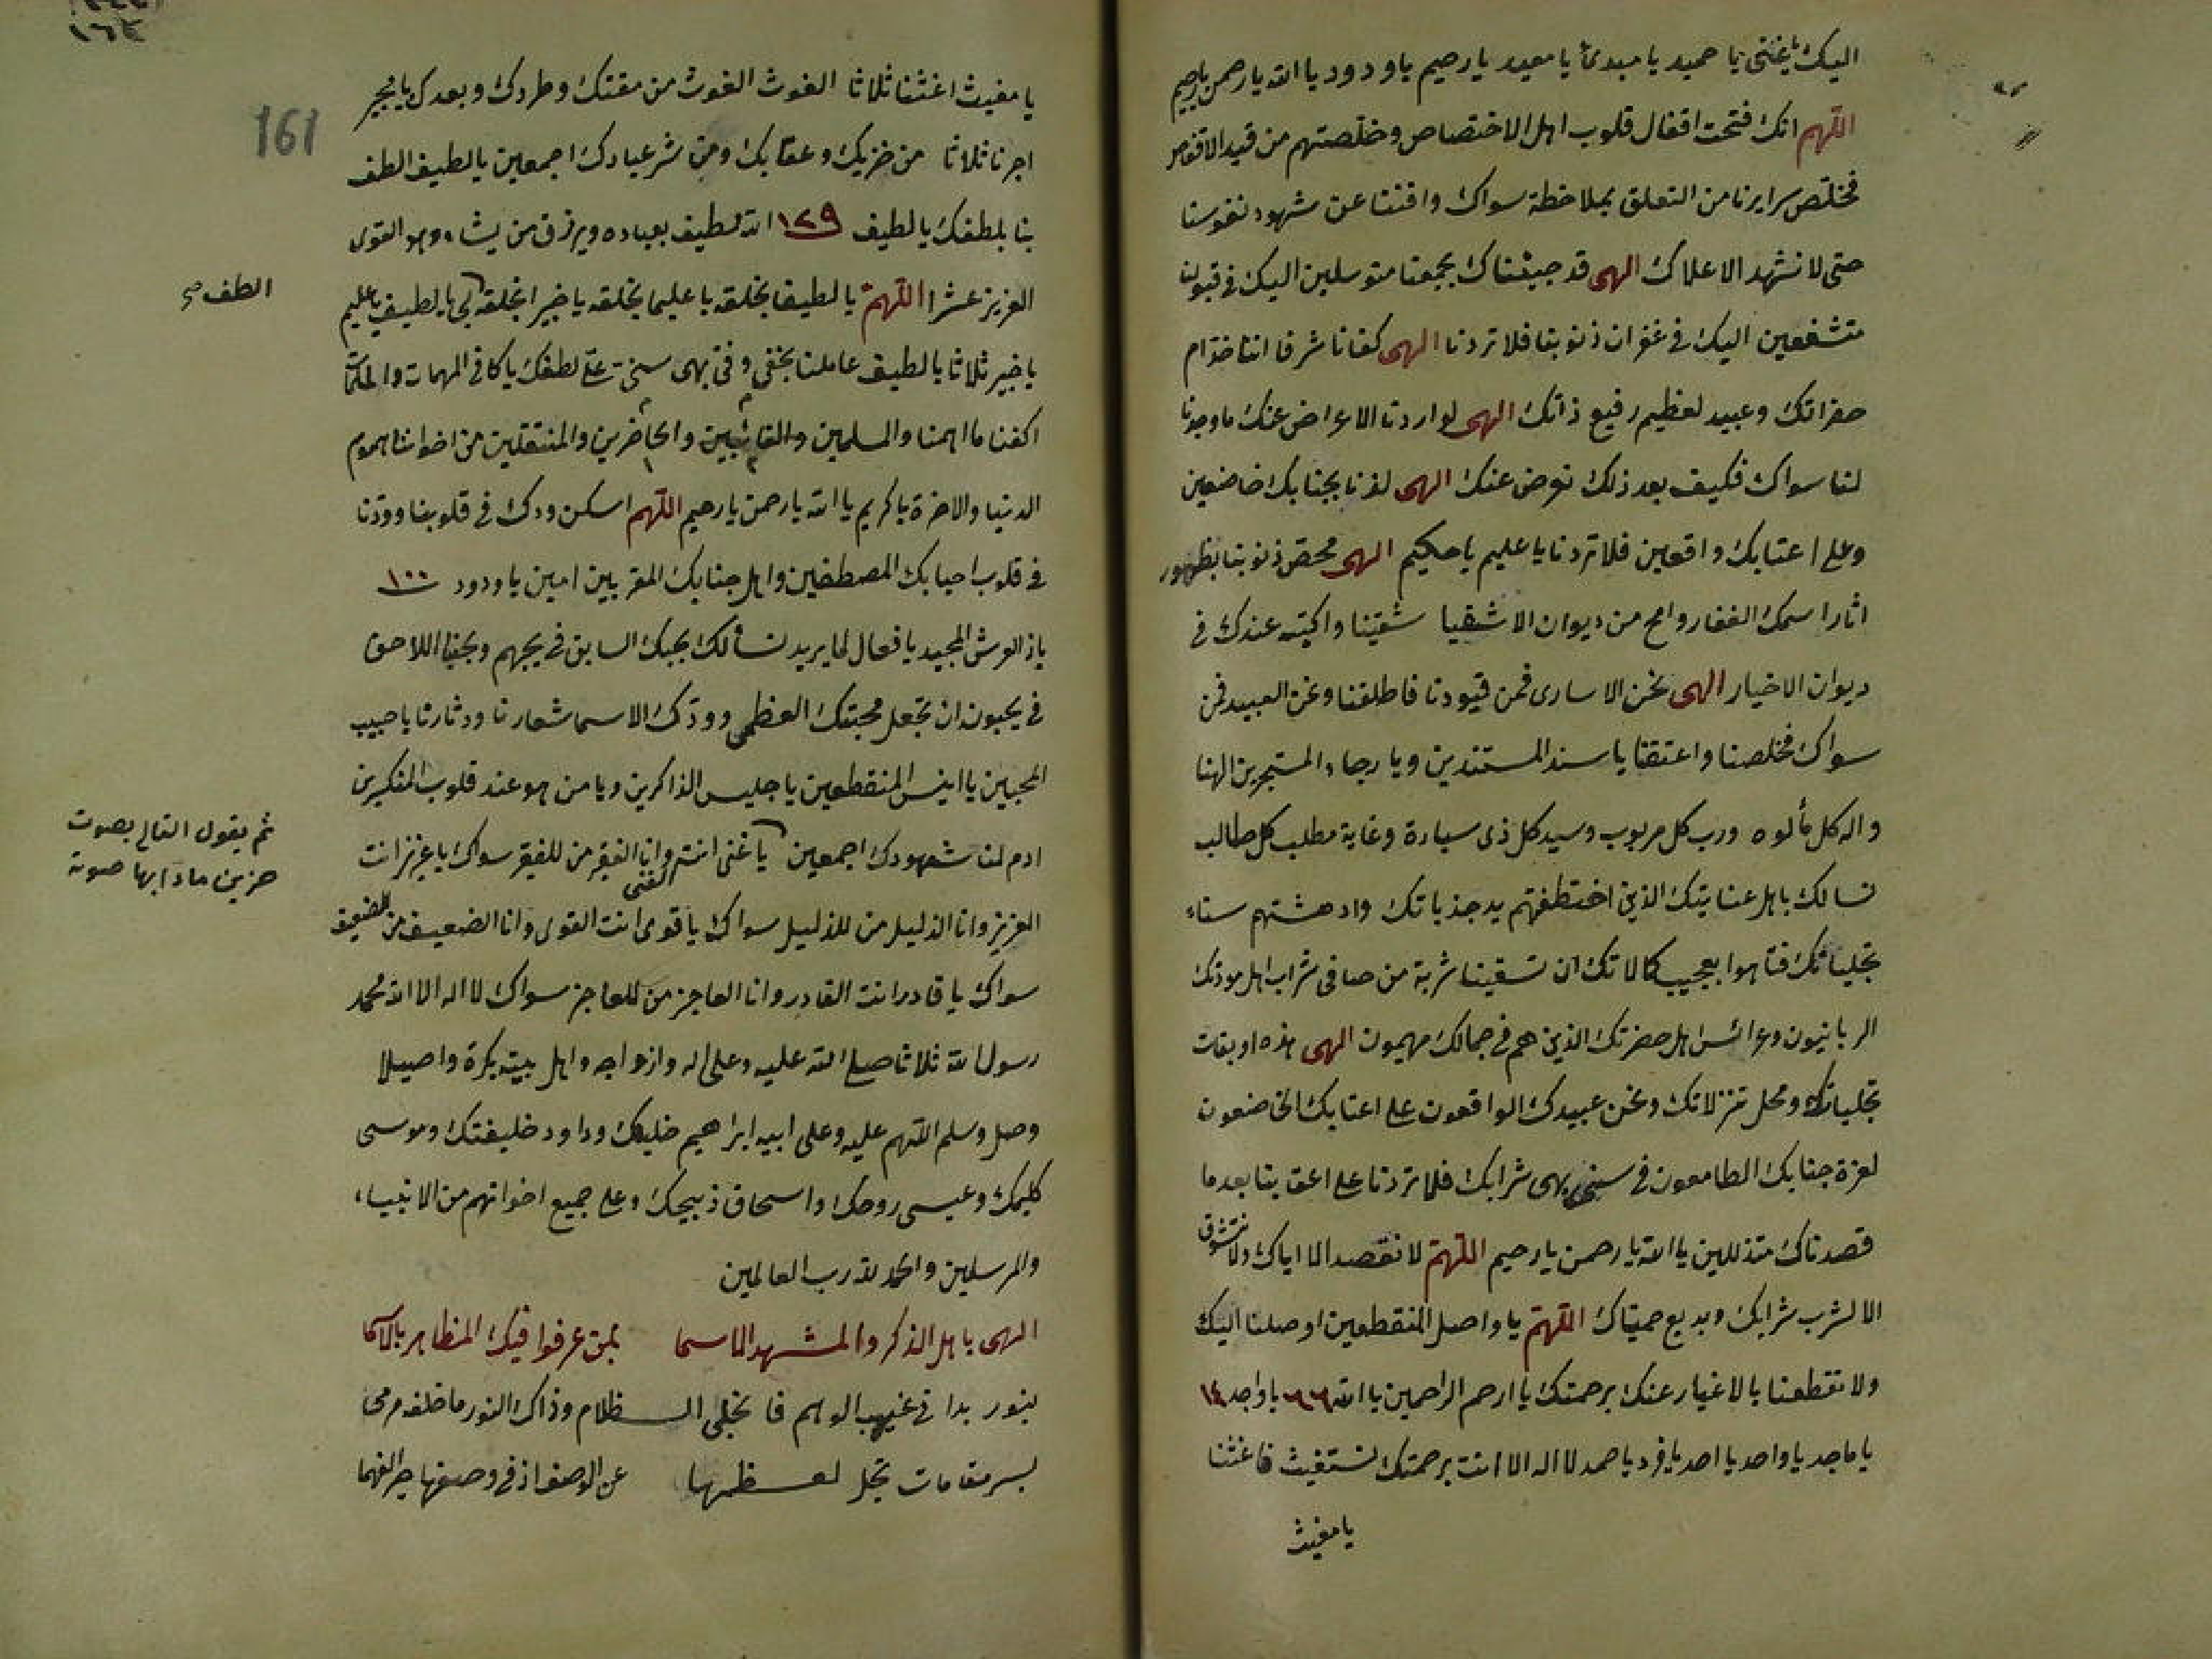 اليك يا غنى يا حميد يا مبدئ يا معيد يا رحيم يا ودود يا الله يا رحمن يا رحيم
اللهم انك فتحت اقفال قلوب اهل الاختصاص وخلصتهم من قيد الاقفاص
فخلص سرايرنا من التعلق بملاحظة سواك وافننا عن شهود نفوسنا
حتى لا نشهد الا علاك الهى قد جيئناك بجمعنا متوسلين اليك فى قبولنا
متشفعين اليك فى غفران ذنوبنا فلا تردنا الهى كفانا شرفا اننا خدام
حضراتك وعبيد لعظيم رفيع ذاتك الهى لو اردنا الاعراض عنك ما وجدنا
لنا سواك فكيف بعد ذلك نعرض عنك الهى لذنا بجنابك خاضعين
وعلى اعتابك واقعين فلا تردنا يا عليم يا حكيم الهى محص ذنوبنا بظهور
اثار اسمك الغفار وامح من ديوان الاشقيا شقينا واكتبه عندك فى
ديوان الاخيار الهى نحن الاسارى فمن قيودنا فاطلقنا ونحن العبيد فمن
سواك فخلصنا واعتقنا يا سند المستندين ويا رجاء المستجيرين الهنا
واله كل مألوه ورب كل مربوب وسيد كل ذى سيادة وغاية مطلب كل طالب
نسالك باهل عنايتك الذين اختطفتهم يد جذباتك وادهشتهم سناء
تجلياتك فتاهوا بعجيب كمالاتك ان تسقينا شربة من صافى شراب اهل مودتك
الربانيون وعرائس اهل حضرتك الذين هم فى جمالك مهيمون الهى هذه اويقات
تجلياتك ومحل تنزلاتك ونحن عبيدك الواقعون على اعتابك الخاضعون
لعزة جنابك الطامعون فى سنى بهى شرابك فلا تردنا على اعقابنا بعد ما
قصدناك متذللين يا الله يا رحمن يا رحيم اللهم لا نقصد الا اياك ولا نتشوق
الا لشرب شرابك وبديع حمياك اللهم يا واصل المنقطعين اوصلنا اليك
ولا تقطعنا بالاغيار عنك برحمتك يا ارحم الراحمين يا الله ٦٦ يا واجد ١٤
يا ماجد يا واحد يا احد يا فرد يا صمد لا اله الا انت برحمتك نستغيث فاغثنا
يا مغيث
161
يا مغيث اغثنا ثلاثا الغوث الغوث من مقتك وطردك وبعدك يا مجير
اجرنا ثلاثا من خزيك وعقابك ومن شر عبادك اجمعين يا لطيف الطف
بنا بلطفك يا لطيف ١٢٩ الله لطيف بعباده ويرزق من يشاء وهو القوى
العزيز عشرا اللهم يا لطيفا بخلقه يا عليما بخلقه يا خبيرا بخلقه بى يا لطيف يا عليم
الطف صح
يا خبير ثلاثا يا لطيف عاملنا بخفى وفى بهى سنى على لطفك يا كافى المهمات والملمات
اكفنا ما اهمنا والمسلمين والغائبين والحاضرين والمنتقلين من اخواننا هموم
الدنيا والاخرة يا كريم يا الله يا رحمن يا رحيم اللهم اسكن ودك فى قلوبنا وودنا
فى قلوب احبابك المصطفين واهل جنابك المقربين امين يا ودود ١٠٠
يا ذا العرش المجيد يا فعال لما يريد نسألك بحبك السابق فى يحبهم وبحبنا اللاحق
فى يحبون ان تجعل محبتك العظمى وودك الاسما شعارنا ودثارنا يا حبيب
المحبين يا انيس المنقطعين يا جليس الذاكرين ويا من هو عند قلوب المنكسرين
ادم لنا شهودك اجمعين يا غنى انت الغنى وانا الفقير من للفقير سواك يا عزيز انت
ثم يقول التالى بصوت
حزين مادا بها صوته
العزيز وانا الذليل من للذليل سواك يا قوى انت القوى وانا الضعيف من للضعيف
سواك يا قادر انت القادر وانا العاجز من للعاجز سواك لا اله الا الله محمد
رسول الله ثلاثا صلى الله عليه وعلى اله وازواجه واهل بيته بكرة واصيلا
وصل وسلم اللهم عليه وعلى ابيه ابراهيم خليلك وداود خليفتك وموسى
كليمك وعيسى روحك واسحاق ذبيحك وعلى جميع اخوانهم من الانبياء
والمرسلين والحمد لله رب العالمين
الهى باهل الذكر والمشهد الاسما بمن عرفوا فيك المظاهر بالاسما
بنور بدا فى غيهب الوهم فانجلى الظلام وذاك النور ما خلفه مرمى
بسر مقامات تجل لعظمها عن الوصف اذ فى وصفها حير الفهما